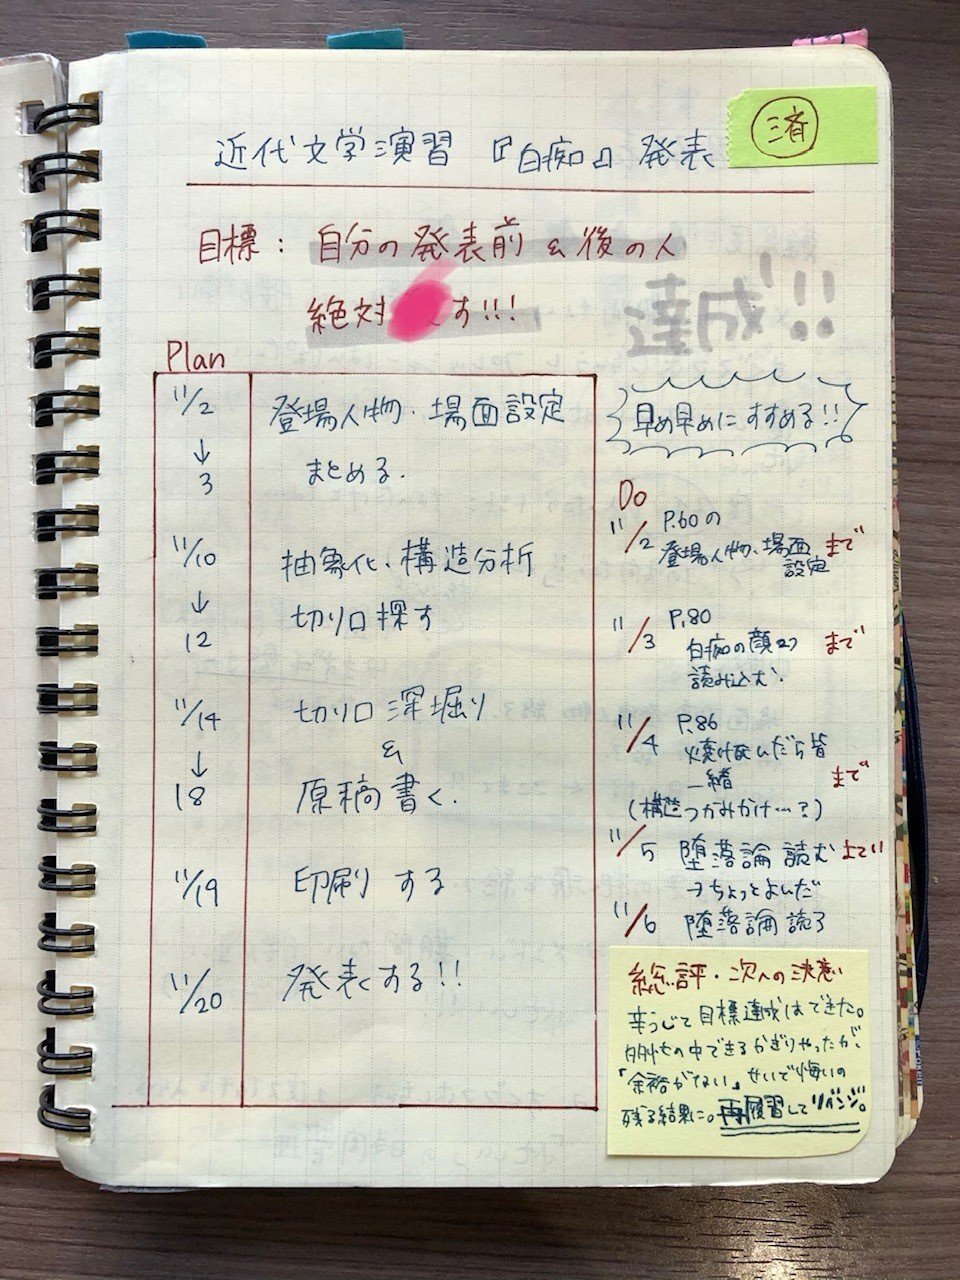 済
近代文学演習 『白痴』 発表
目標: 自分の発表前 & 後の人
絶対 す!!!
達成!!!
Plan
11/2
↓
3
登場人物・場面設定
まとめる.
11/10
↓
12
抽象化、構造分析
切り口探す
11/14
↓
18
切り口深堀り
&
原稿書く.
11/19
印刷する
11/20
発表する!!
早め早めにすすめる!!
Do
11/2 P.60の
登場人物、場面
設定 まで
11/3 P.80
白痴の顔2つ まで
読み込む.
11/4 P.86
焼け死んだら皆
一緒 まで
(構造つかみかけ…?)
11/5 堕落論 読む よてい
→ちょっとよんだ
11/6 堕落論 読了
総評・次への決意
辛うじて目標達成はできた。
多忙の中できるかぎりやったが、
「余裕がない」せいで悔いの
残る結果に。再履習してリベンジ。